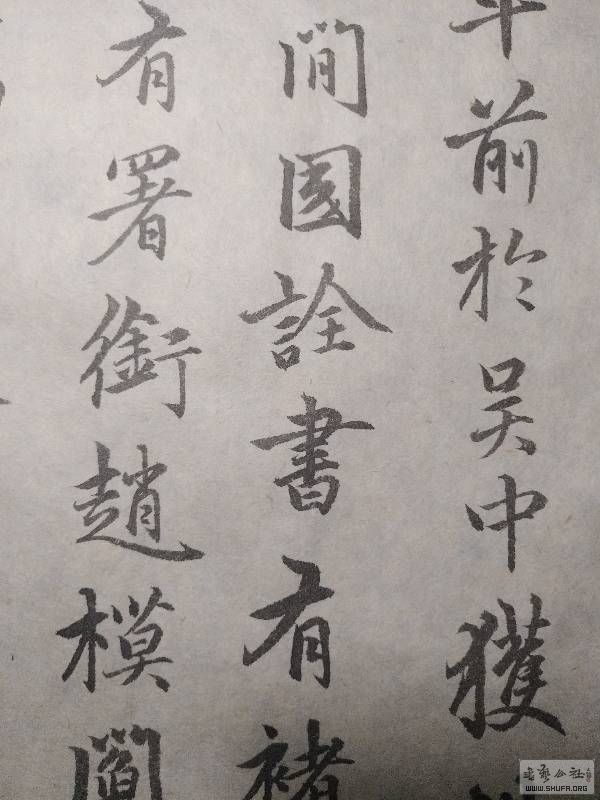 年前於吴中獲
間國詮書有褚
有署銜趙模閻
书艺公社
WWW.SHUFA.ORG